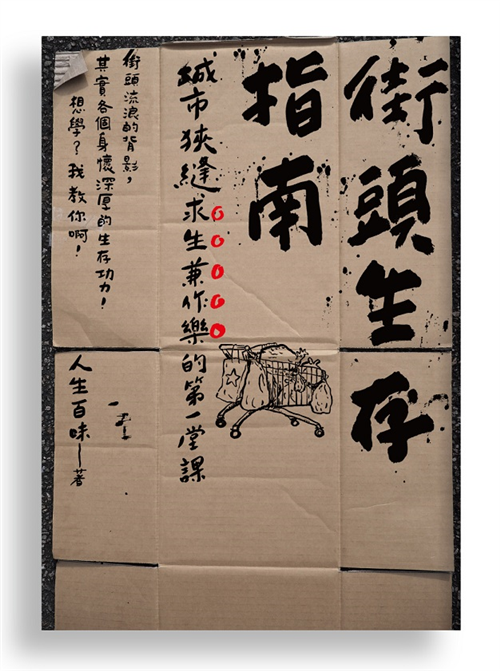 街頭生存
指南
城市狹縫求生兼作樂的第一堂課
街頭流浪的背影，
其實各個身懷深厚的生存功力！
想學？我教你啊！
人生百味—著